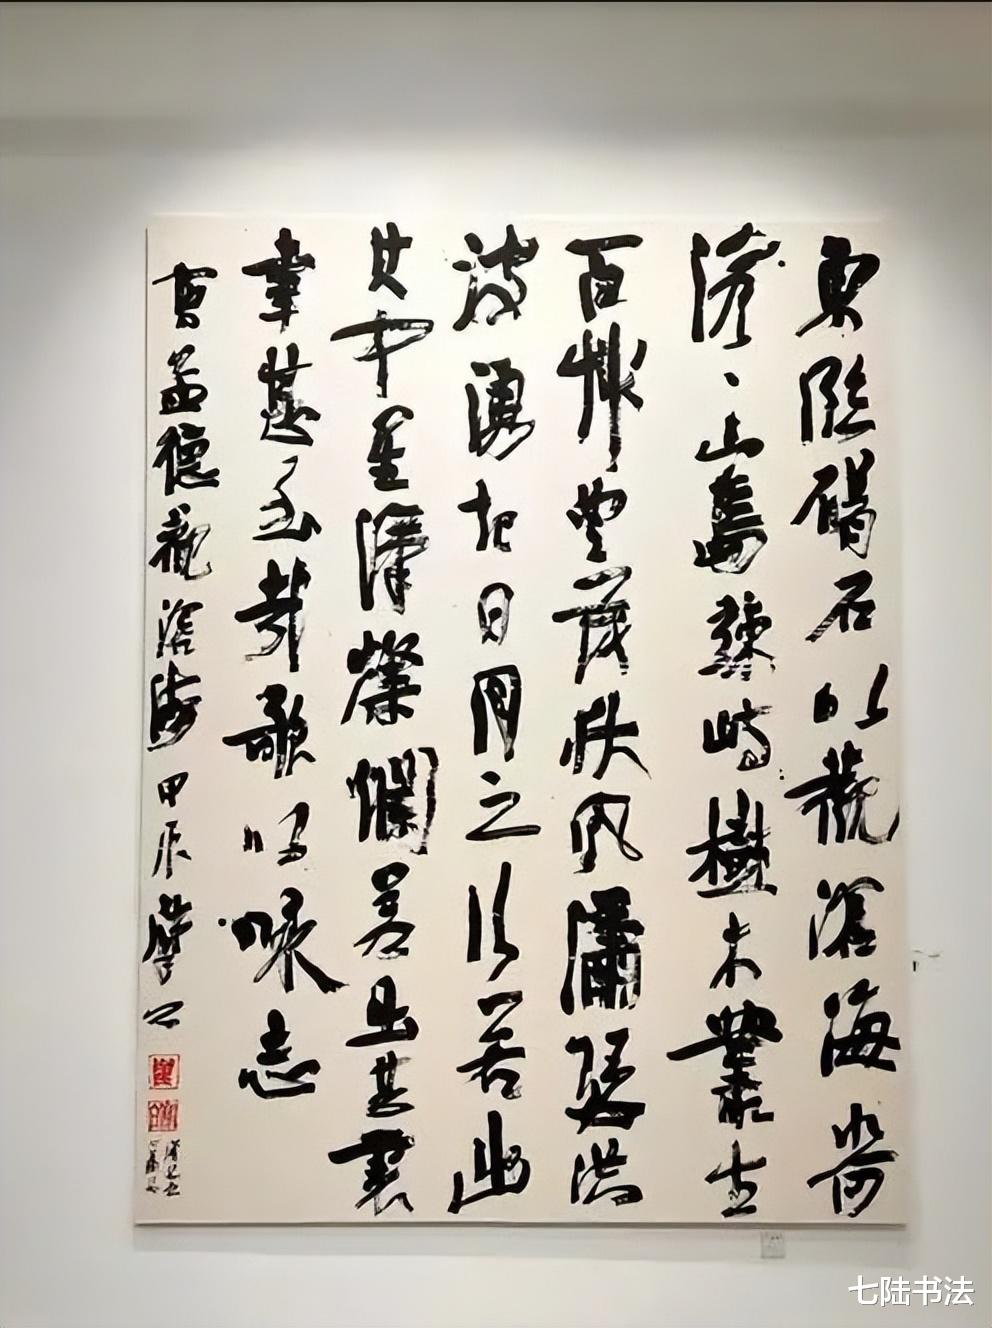 東臨碣石以觀滄海水何
澹、山島竦峙樹木叢生
百艸豐茂秋風瀟瑟洪
波湧起日月之行若出
其中星漢燦爛若出其裏
幸甚至哉歌以詠志
曹孟德觀滄海甲辰
七陆书法